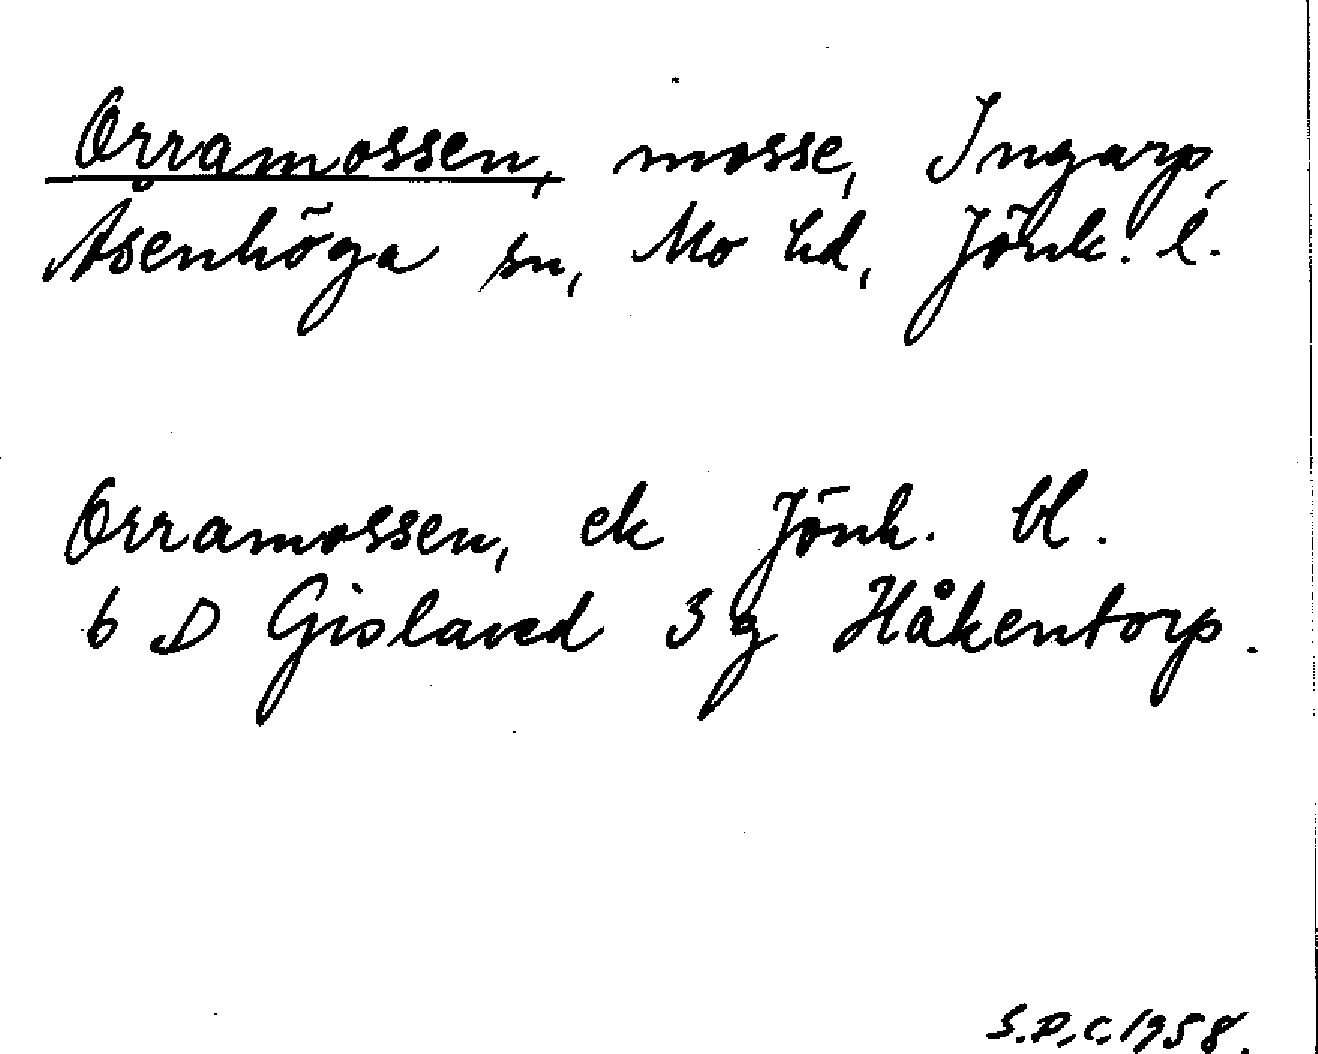 Orramossen, mosse, Ingarp,
Åsenhöga sn, Mo hd, Jönk. l.
Orramossen, ek Jönk. bl.
6 D Gislaved 3 g Håkentorp.
S.P.C. 1958.